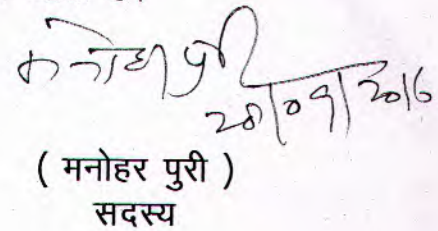 मनोहर पुरी
20/09/2016
( मनोहर पुरी )
सदस्य